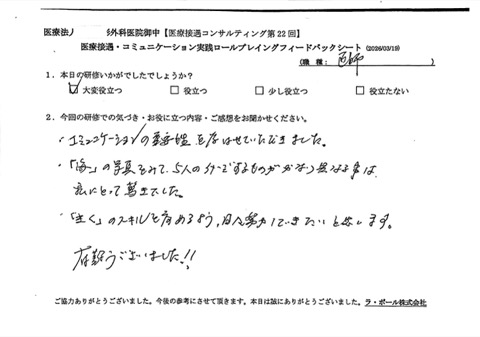 医療法人 外科医院御中【医療接遇コンサルティング第22回】
医療接遇・コミュニケーション実践ロールプレイングフィードバックシート (2026/03/19)
(職種：医師)
1．本日の研修いかがでしたでしょうか？
☑大変役立つ □役立つ □少し役立つ □役立たない
2．今回の研修での気づき・お役に立つ内容・ご感想をお聞かせください。
・コミュニケーションの重要性 させていただきました。
・「海」の写真をみて、5人の イメージするものがかなり異なる事は、
私にとって驚きでした。
・「生く」のスキルを高めるよう、日々努力していきたいと思います。
有難うございました!!
ご協力ありがとうございました。今後の参考にさせて頂きます。本日は誠にありがとうございました。ラ・ポール株式会社